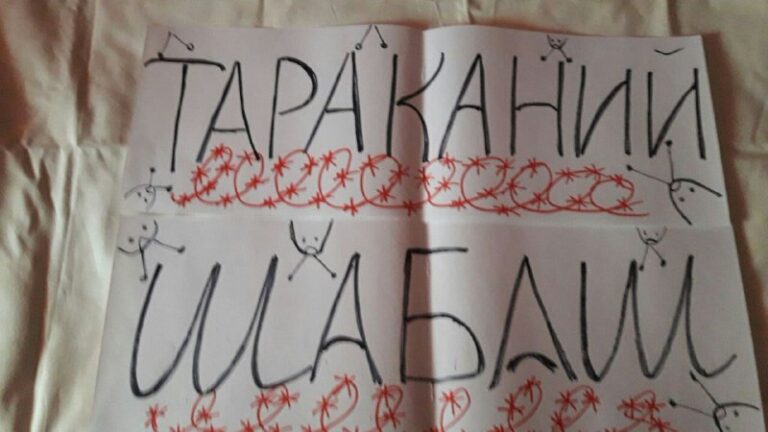 ТАРАКАНИЙ
ШАБАШ